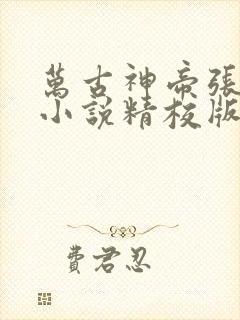 萬古神帝張
小說精校版
費君忍